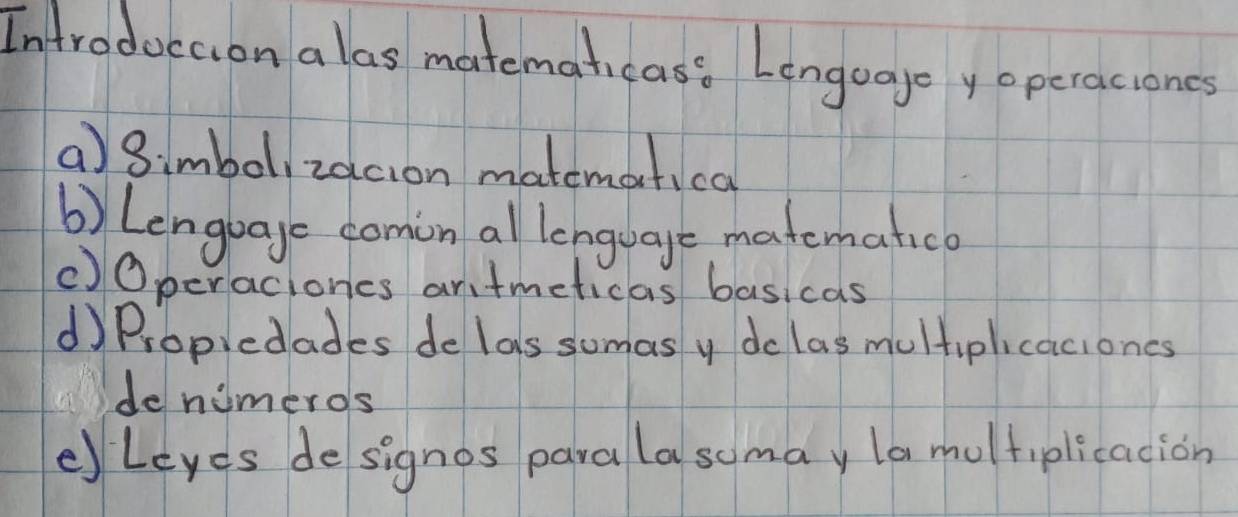 Introduccion a las matematicas: Lenguaje y operaciones
a) Simbolizacion matematica
b) Lenguaje común al lenguaje matematico
c) Operaciones aritmeticas basicas
d) Propiedades de las sumas y de las multiplicaciones
de números
e) Leyes de signos para la suma y la multiplicación